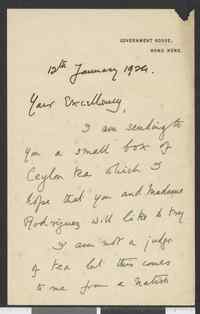 GOVERNMENT HOUSE,
HONG KONG.
12th January 1924.
Your Excellency,
I am sending to
you a small box of
Ceylon tea which I
hope that you and Madame
Rodriguez will like to try
I am not a judge
of tea but this comes
to me from a